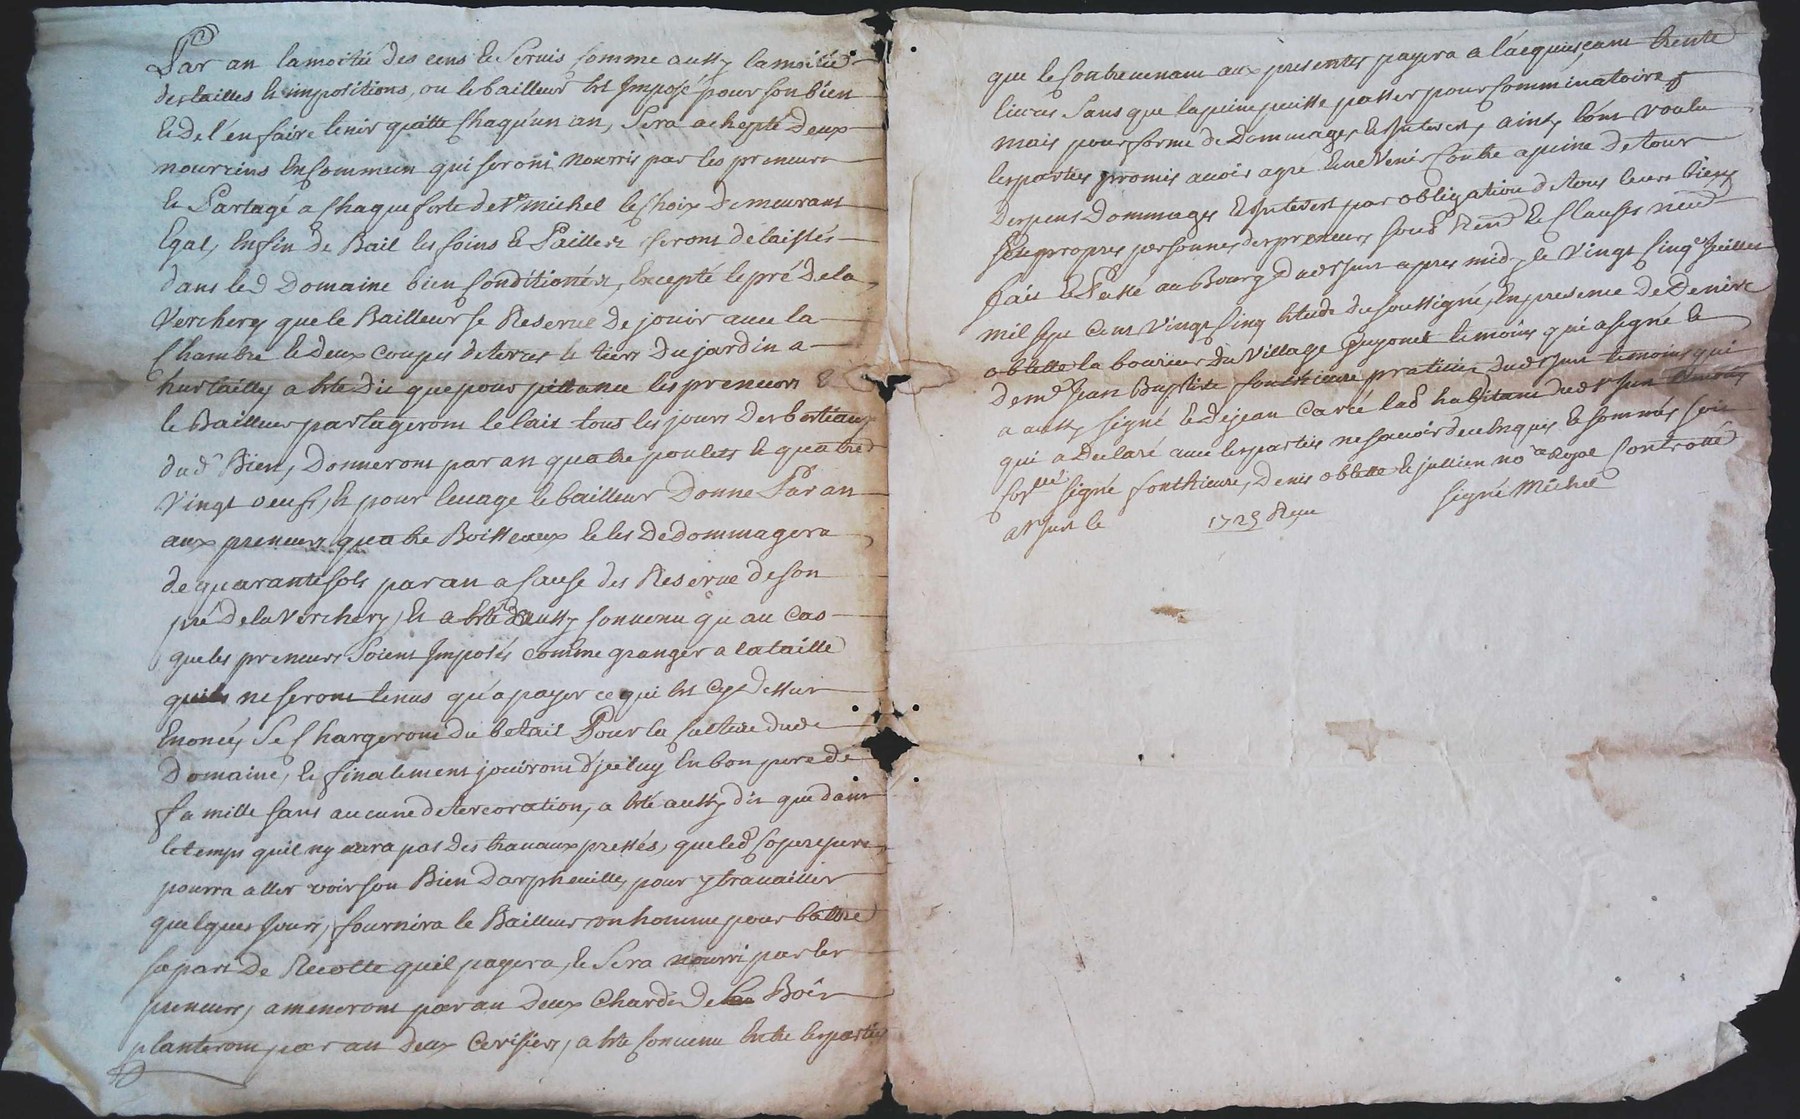 Par an lamoitié des cens & Servis Comme aussy lamoitié
destailles & impositions, ou lebailleur Est Imposé pour son bien
& de l'en faire tenir quitte Chaqu'un an, Sera achepté deux
nourrins En Commun qui seront Nourris par les preneurs
& Partagé a Chaque foste de St michel le Choix Demeurant
Egal, Enfin de Bail les foins & Pailles seront delaissés
dans led Domaine bien Conditionnés, Excepté le pré dela
Verchery que le Bailleur se Reserve de jouir avec la
Chambre & deux coupes deterres le tiers Du jardin a
hurtailles a Esté dit que pour pittance les preneurs &
le Bailleur partageront le lait tous les jours des bestiaux
dud Bien, Donneront par an quatre poulets & quatre
Vingt oeufs, & pour leuage le bailleur Donne Par an
aux preneurs quatre Boisseaux & les Dedommagera
de quarante sols par an a Cause des Reserve de son
pré De la Verchery, Et a Esté Aussy Convenu qu'au Cas
que les preneurs Soient Imposés Comme granger a lataille
quils ne seront tenus qu'a payer ce qui Est Cy Dessus
Enoncé, Se Chargeront du betail Pour la Culture dud
Domaine, & finalement jouiront d'jceluy En bon pere de
famille sans aucune detercoration, a Esté aussy dit que dans
letemps quil ny aura pas Des travaux pressés, que led
pourra aller voir son Bien Darpheuille, pour y travailler
quelques Jours, fournira le Bailleur un homme pour battre
sa part De Recolte quil payera, & Sera nourri par les
preneurs, ameneront par an Deux Chards De Bois
planteront par an Deux Cerisiers, a Esté Convenu Entre les parties
que le Contrevenant aux presentes payera a l'acquiesçant trente
livres Sans que lapeine puisse passer pour Comminatoire
mais pour forme de Dommages & Interest, ainsy l'ont Voulu
les parties promis avoir agre & ne Venir Contre a peine de tous
Despens Dommages & Interest par obligation de tous leurs biens
& les propres personnes des preneurs Soub Renon & Clauses necess
fait & Passé au Bourg de St Just apres midy le Vingt Cinq Juillet
mil Sept Cent Vingt Cinq Etude du soussigné, En presence de Denis
oblette laboureur du Village Guyonet temoins qui a signé &
de me Jean Baptiste fonthieure praticien dud St Just temoins qui
a aussy signé & Dejean Carré Lad habitant dud St Just temoins
qui a Declaré avec les parties ne savoir de ce Enquis & Sommés Soit
signé fonthieure, Denis oblette & jullien nore Royal Controllé
a St Just le 1725 Reçu signé Michel